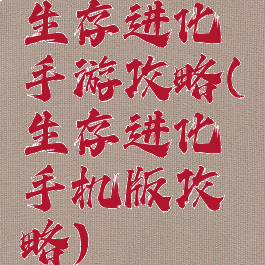 生存进化
手游攻略(
生存进化
手机版攻
略)